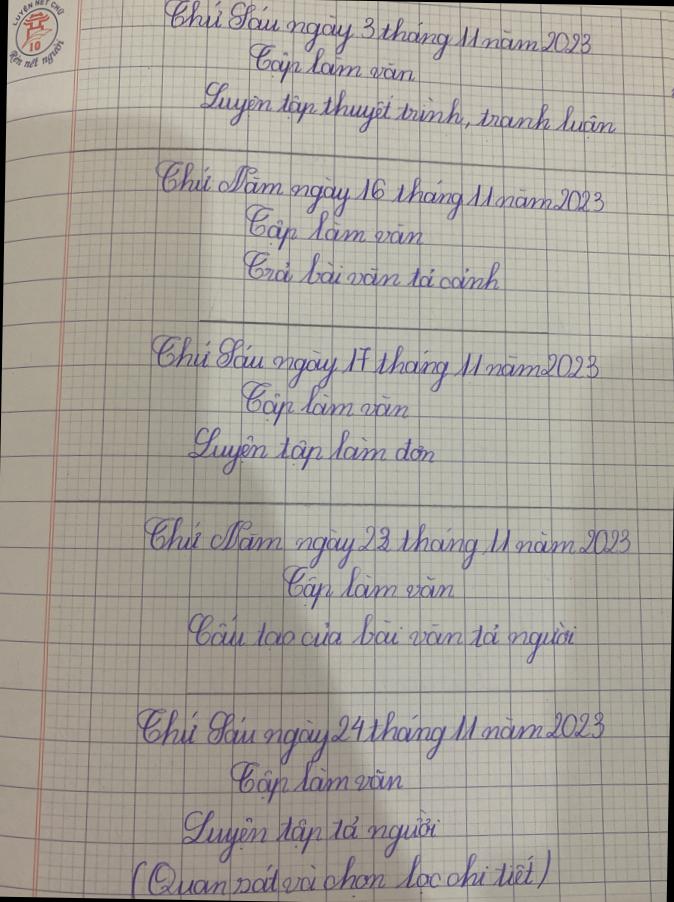 LUYỆN NÉT CHỮ
10
Rèn nết người
Thứ Sáu ngày 3 tháng 11 năm 2023
Tập làm văn
Luyện tập thuyết trình, tranh luận
Thứ Năm ngày 16 tháng 11 năm 2023
Tập làm văn
Trả bài văn tả cảnh
Thứ Sáu ngày 17 tháng 11 năm 2023
Tập làm văn
Luyện tập làm đơn
Thứ Năm ngày 23 tháng 11 năm 2023
Tập làm văn
Cấu tạo của bài văn tả người
Thứ Sáu ngày 24 tháng 11 năm 2023
Tập làm văn
Luyện tập tả người
(Quan sát và chọn lọc chi tiết)